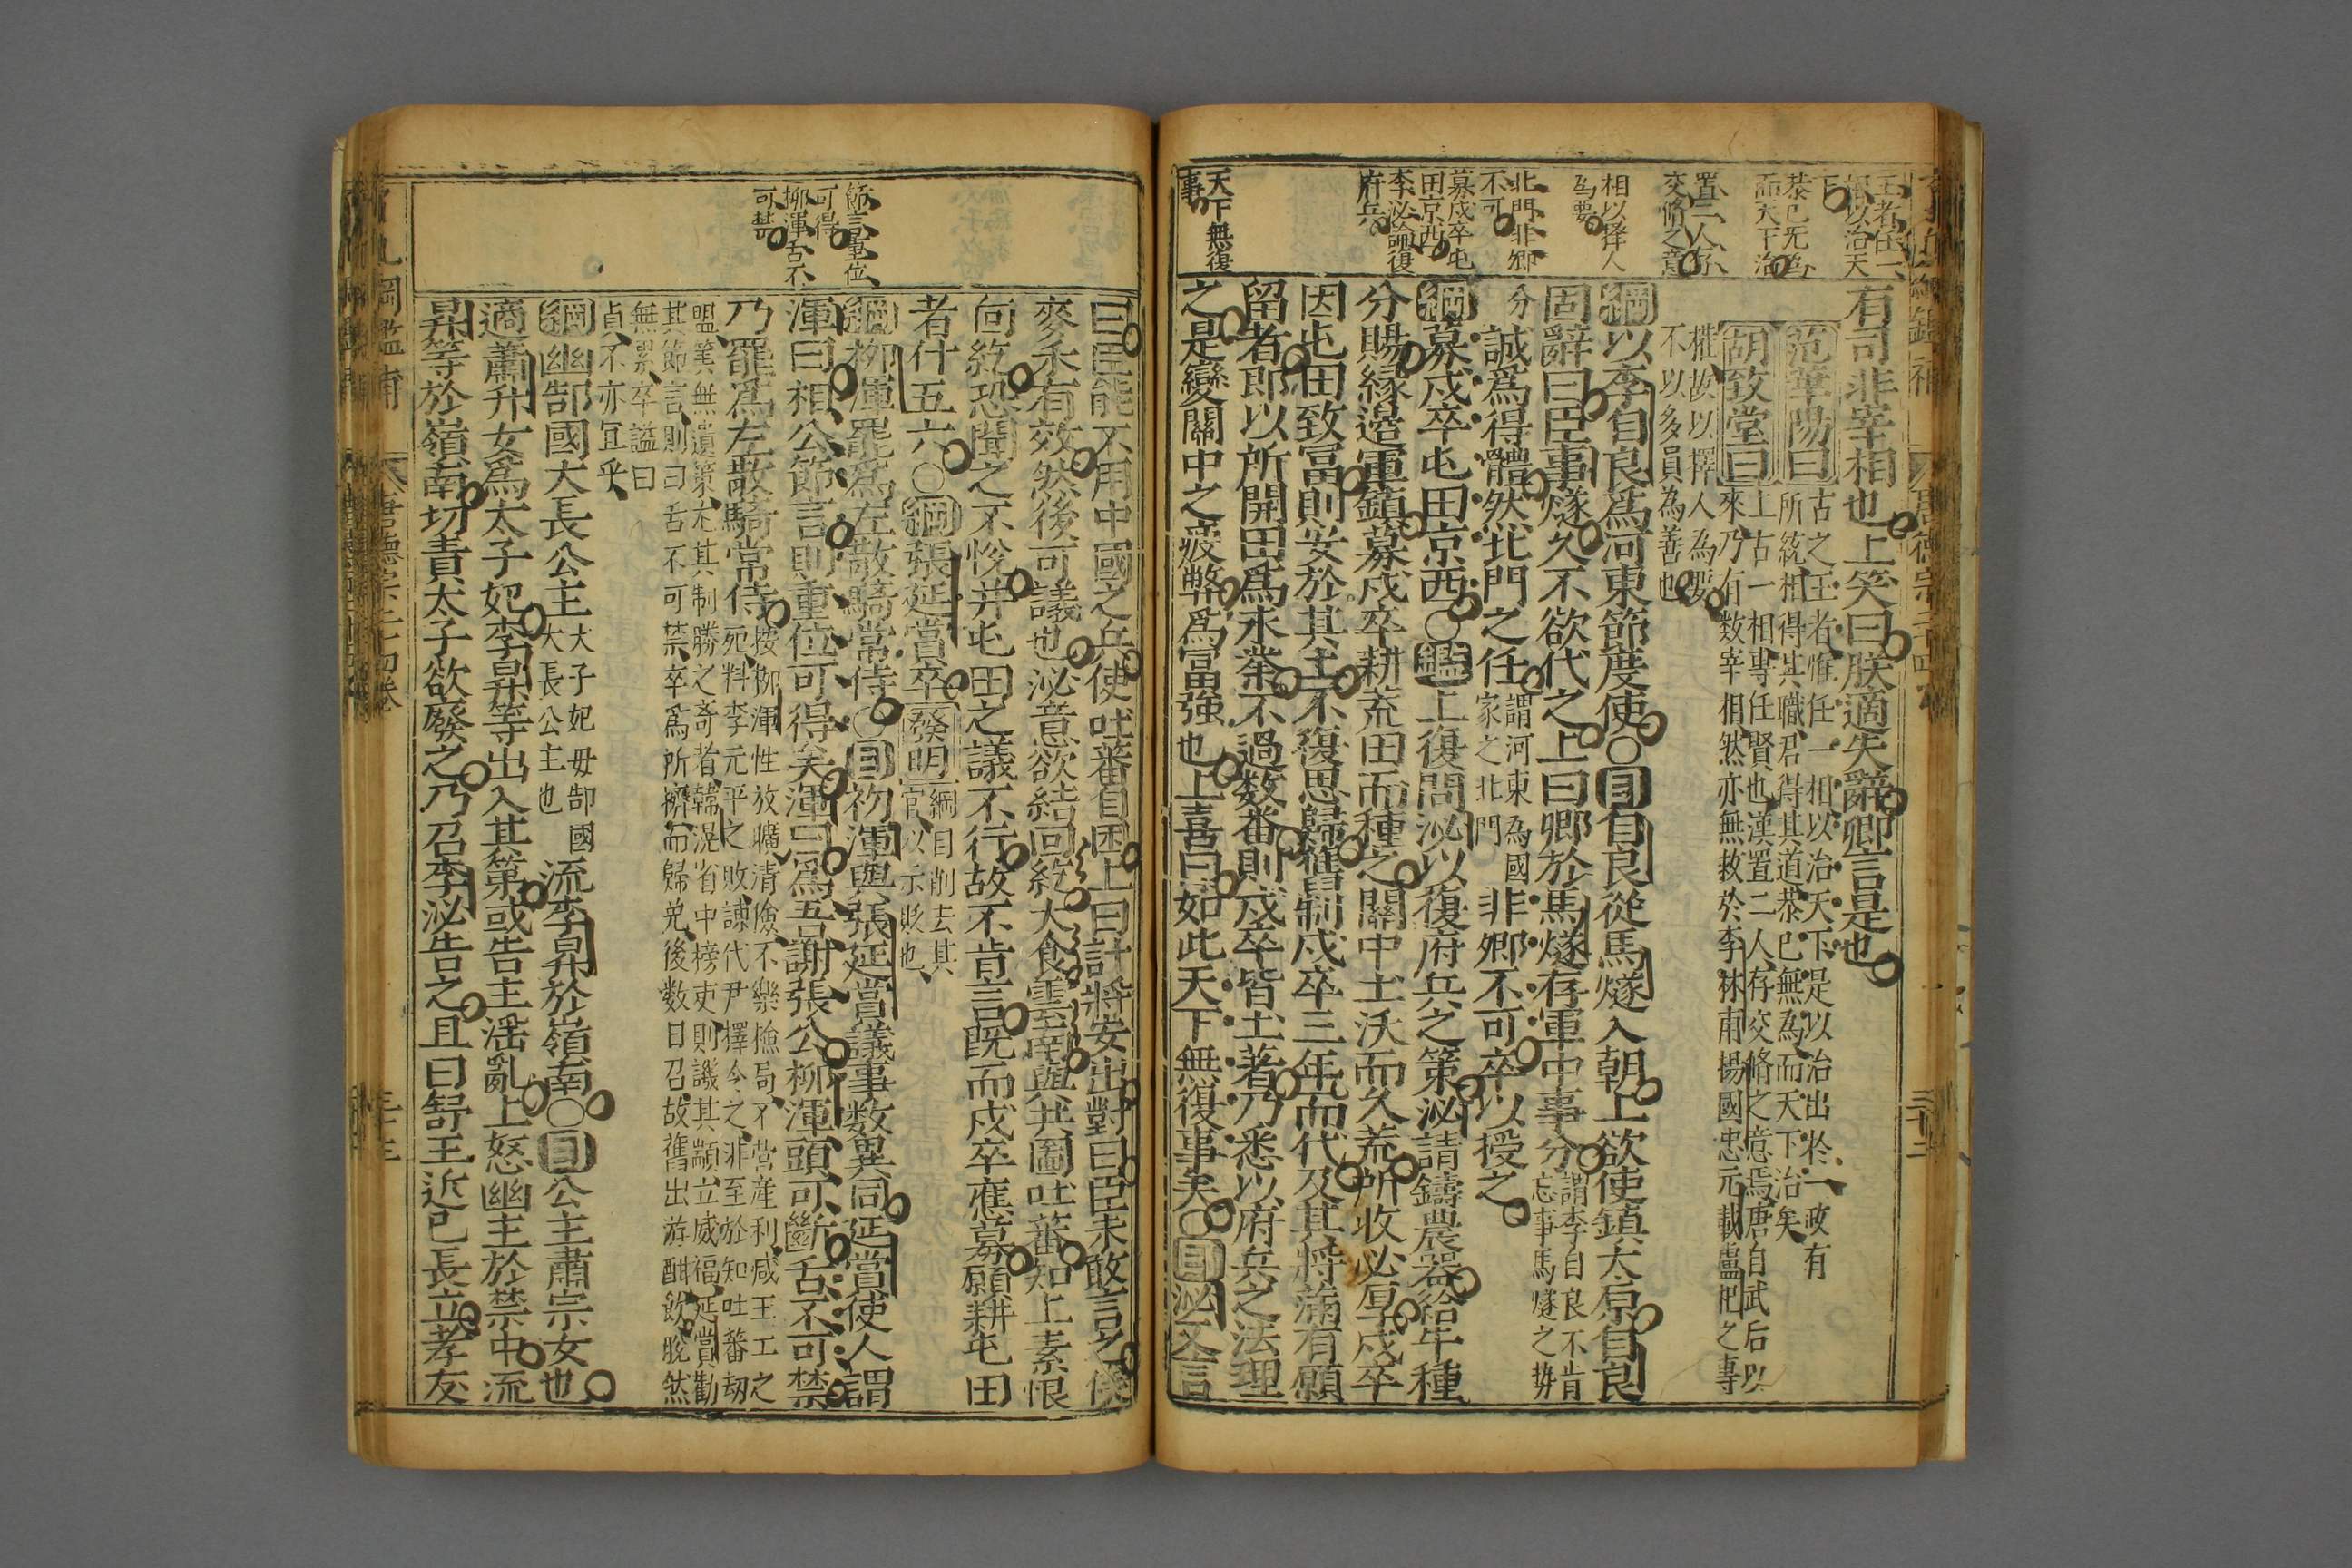 王者任一
相以治天
下
恭己无為
而天下治
置二人存
交脩之意
相以擇人
為要
北門非卿
不可
募戍卒屯
田京西
李泌論復
府兵
天下無復
事
有司非宰相也上笑曰朕適失辭卿言是也
范華陽曰古之王者惟任一相以治天下是以治出於一政有
所統相得其職君得其道恭己無為而天下治矣
胡致堂曰上古一相專任賢也漢置二人存交脩之意焉唐自武后以
來乃有数宰相然亦無救於李林甫楊國忠元載盧杞之專
權故以擇人為要
不以多員為善也
綱以李自良爲河東節度使○目自良從馬燧入朝上欲使鎮太原自良
固辭曰臣事燧久不欲代之上曰卿於馬燧存軍中事分謂李自良不肯
忘事馬燧之舊
分誠爲得體然北門之任謂河東為國
家之北門非卿不可卒以授之
綱募戍卒屯田京西○鑑上復問泌以復府兵之策泌請鑄農器給牛種
分賜緣邊軍鎮募戍卒耕荒田而種之關中土沃而久荒所收必厚戍卒
因屯田致富則安於其土不復思歸舊制戍卒三年而代及其將滿有願
留者即以所開田爲永業不過数番則戍卒皆土著乃悉以府兵之法理
之是變關中之疲弊爲富強也上喜曰如此天下無復事矣○目泌又言
節言重位
可得
柳渾舌不
可禁
曰臣能不用中國之兵使吐蕃自困上曰計將安出對曰臣未敢言之俟
麥禾有效然後可議也泌意欲結回紇大食雲南與共圖吐蕃知上素恨
回紇恐聞之不悅并屯田之議不行故不肯言既而戍卒應募願耕屯田
者什五六○綱張延賞卒發明綱目削去其
官以示貶也
綱柳渾罷爲左散騎常侍○目初渾與張延賞議事数異同延賞使人謂
渾曰相公節言則重位可得矣渾曰爲吾謝張公柳渾頭可斷舌不可禁
乃罷爲左散騎常侍按柳渾性放曠清儉不樂檢局不營産利咸王工之
死料李元平之敗諫代尹擇令之非至於知吐蕃刼
盟美無遺策尤其制勝之奇者韓滉省中榜吏則譏其顓立威福延賞勸
其節言則曰舌不可禁卒爲所擠而歸免後数日召故舊出游酣飲脫然
無累卒謚曰
貞不亦冝乎
綱幽郜國大長公主太子妃母郜國
大長公主也流李昇於嶺南○目公主肅宗女也
適蕭升女爲太子妃李昇等出入其第或告主淫亂上怒幽主於禁中流
昇等於嶺南切責太子欲廢之乃召李泌告之且曰舒王近已長立孝友